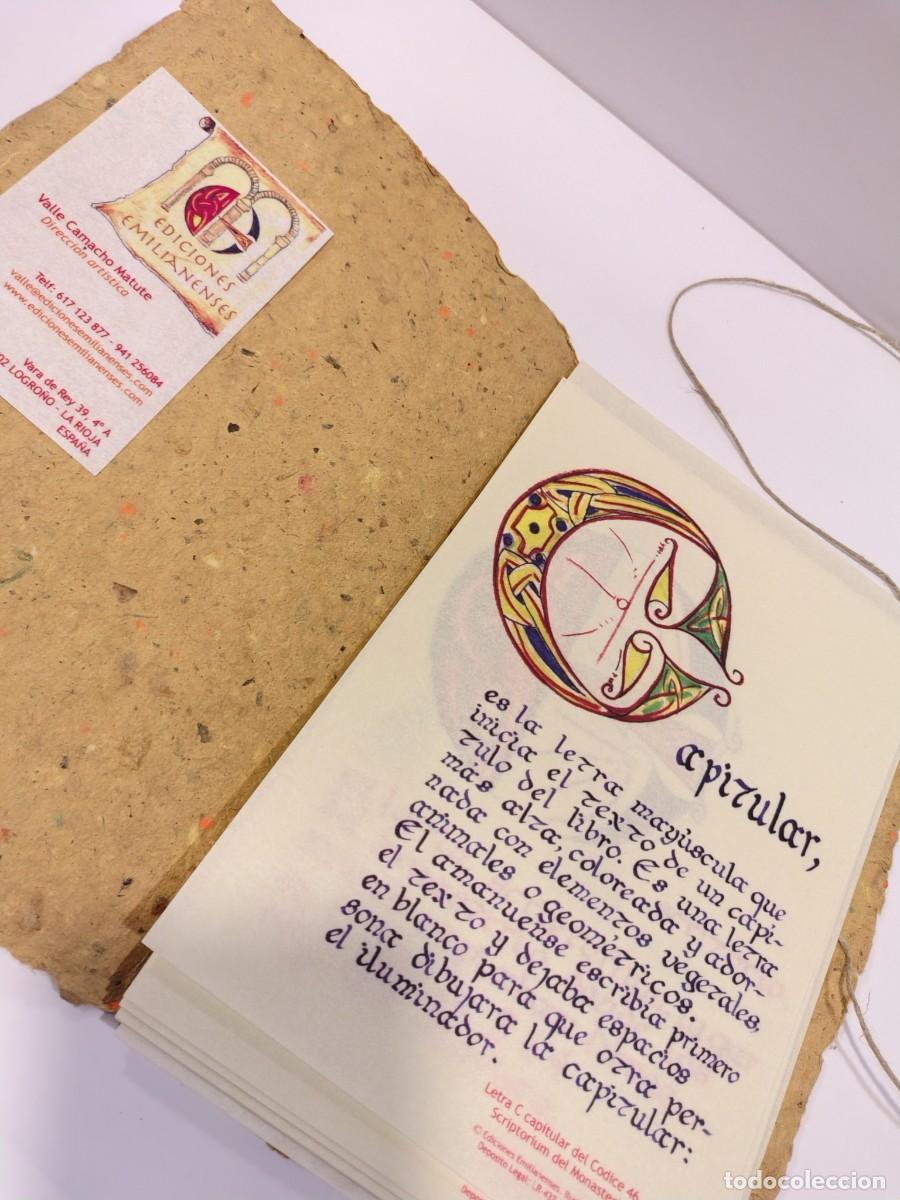 EDICIONES
EMILIANENSES
Valle Camacho Matute
Dirección artística
Telf: 617 123 877 - 941 256084
valle@edicionesemilianenses.com
www.edicionesemilianenses.com
Vara de Rey 39, 4º A
02 LOGROÑO - LA RIOJA
ESPAÑA
Capitular,
es la letra mayúscula que
inicia el texto de un capí-
tulo del libro. Es una letra
más alta, coloreada y ador-
nada con elementos vegetales,
animales o geométricos.
El amanuense escribía primero
el texto y dejaba espacios
en blanco para que otra per-
sona dibujara la capitular:
el iluminador.
Letra C capitular del Codice 46
Scriptorium del Monaste
© Ediciones Emilianenses.
Deposito Legal: LR
todocoleccion